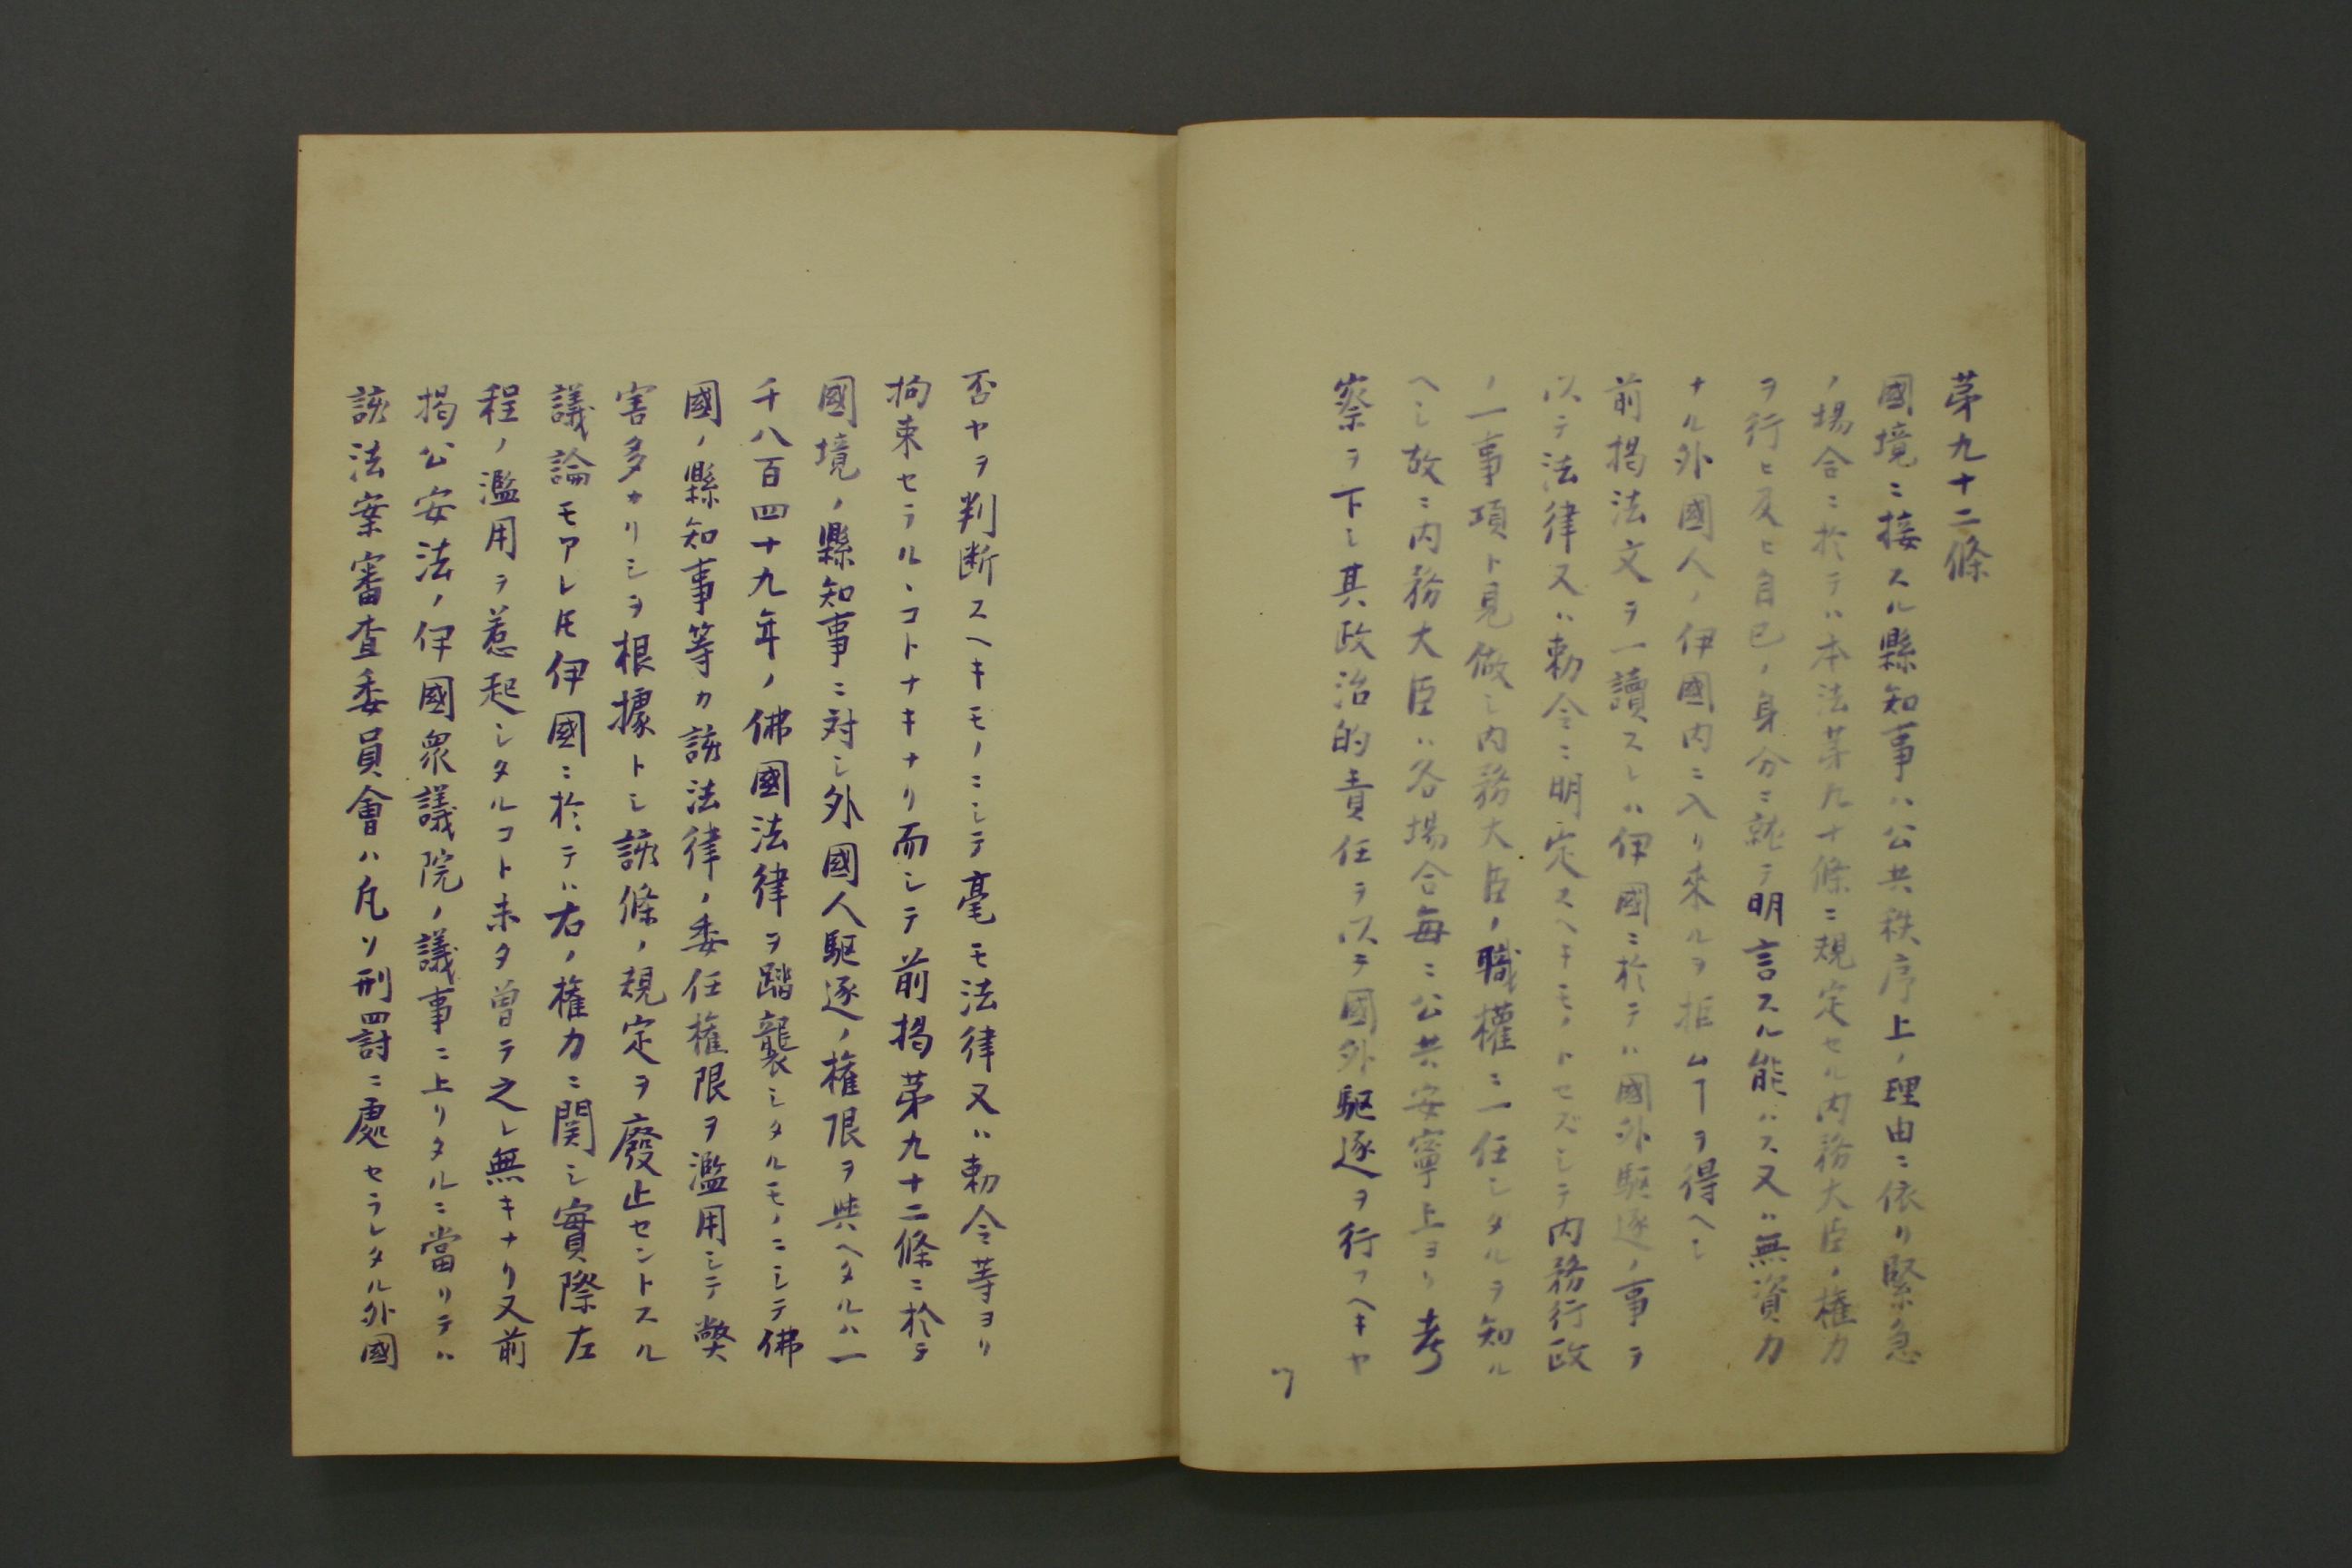 第九十二條
國境ニ接スル縣知事ハ公共秩序上ノ理由ニ依リ緊急
ノ場合ニ於テハ本法第九十條ニ規定セル内務大臣ノ権力
ヲ行ヒ及ヒ自己ノ身分ニ就テ明言スル能ハス又ハ無資力
ナル外國人ノ伊國内ニ入リ來ルヲ拒ムヿヲ得ヘシ
前掲法文ヲ一讀スレハ伊國ニ於テハ國外駆逐ノ事ヲ
以テ法律又ハ勅令ニ明定スヘキモノトセズシテ内務行政
ノ一事項ト見做シ内務大臣ノ職權ニ一任シタルヲ知ル
ヘシ故ニ内務大臣ハ各場合毎ニ公共安寧上ヨリ考
察ヲ下シ其政治的責任ヲ以テ國外駆逐ヲ行フヘキヤ
7
否ヤヲ判断スヘキモノニシテ毫モ法律又ハ勅令等ヨリ
拘束セラルヽコトナキナリ而シテ前掲第九十二條ニ於テ
國境ノ縣知事ニ対シ外國人駆逐ノ権限ヲ與ヘタルハ一
千八百四十九年ノ佛國法律ヲ踏襲シタルモノニシテ佛
國ノ縣知事等カ該法律ノ委任権限ヲ濫用シテ弊
害多カリシヲ根據トシ該條ノ規定ヲ廢止セントスル
議論モアレ𪜈伊國ニ於テハ右ノ権力ニ関シ實際左
程ノ濫用ヲ惹起シタルコト未タ曽テ之レ無キナリ又前
掲公安法ノ伊國衆議院ノ議事ニ上リタルニ當リテハ
該法案審査委員會ハ凡ソ刑罰ニ處セラレタル外國